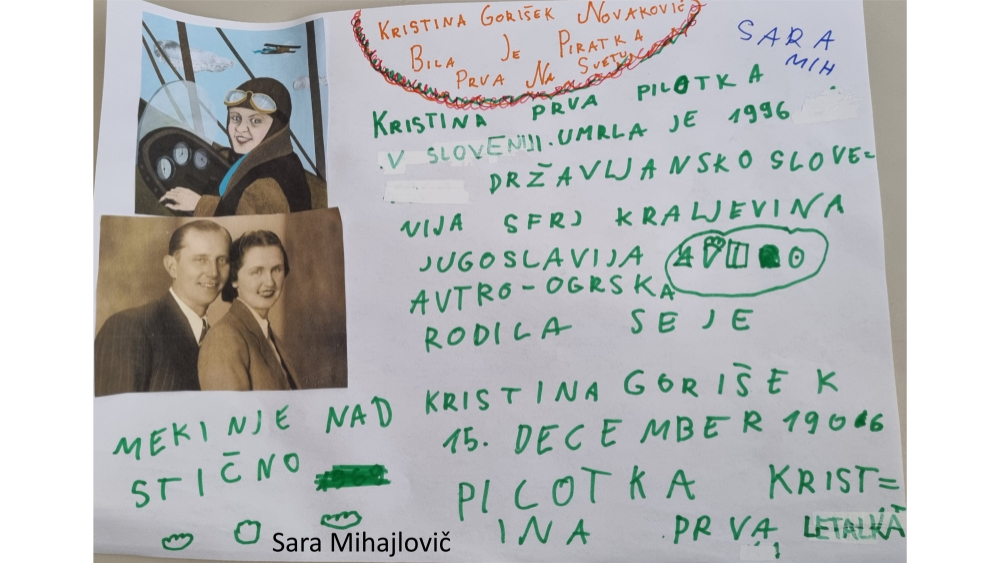 KRISTINA GORIŠEK NOVAKOVIĆ
BILA JE PIRATKA
PRVA NA SVETU
SARA
MIH
KRISTINA PRVA PILOTKA
V SLOVENIJI. UMRLA JE 1996
DRŽAVLJANSKO SLOVE=
NIJA SFRJ KRALJEVINA
JUGOSLAVIJA
AVTRO-OGRSKA
RODILA SE JE
KRISTINA GORIŠEK
15. DECEMBER 1906
MEKINJE NAD
STIČNO
PILOTKA KRIST=
INA PRVA LETALKA
Sara Mihajlovič